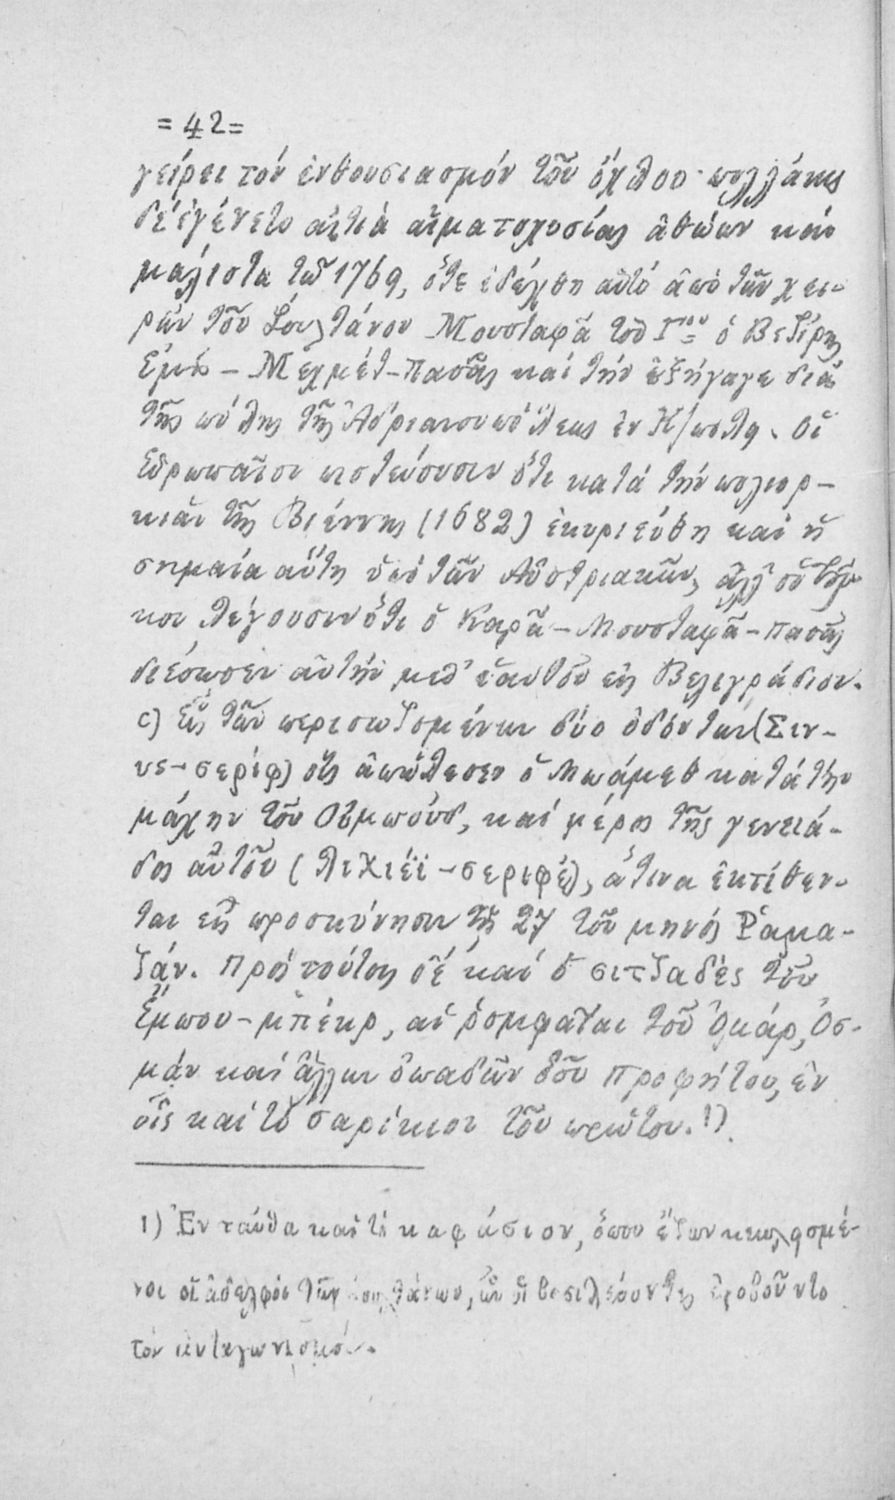 = 42 =
γείρει τόν ἐνθουσιασμόν τοῦ ὄχλου· πολλάκις
δέ ἐγένετο αἰτιά αἱματοχυσίας ἀθώων καί
μάλιστα τῶ 1769, ὅτε ἐδέχθη αὐτό ἀπό τῶν χει-
ρῶν τοῦ Σουλτάνου Μουσταφᾶ τοῦ Γ<sup>ου</sup> ὁ Βεζίρης
Ἐμίν – Μεχμέτ – Πασᾶς καί τήν ἐξήγαγε διά
τῆς πύλης τῆς Ἀδριανουπόλεως ἐν Κ/πολη. Οἱ
Εὐρωπαῖοι πιστεύουσιν ὅτι κατά τήν πολιορ-
κίαν τῆς Βιέννης (1682) ἐκυριεύθη καί ἡ
σημαία αὕτη ὑπό τῶν Αὐστριακῶν, ἀλλ' οἱ Τοῦρ-
κοι λέγουσιν ὅτι ὁ Καρᾶ – Μουσταφᾶ – πασᾶς
διέσωσεν αὐτήν μεθ' ἑαυτοῦ εἰς Βελιγράδιον.
c) Εἷς τῶν περισωζομένων δύο ὀδόντων (Σιν-
νε – σερίφ) οὓς ἀπώλεσεν ὁ Μωάμεθ κατά τήν
μάχην τοῦ Οὐμπούδ, καί μέρος τῆς γενειά-
δος αὐτοῦ (λιχιέϊ – σεριφέ), ἅτινα ἐκτίθεν-
ται εἰς προσκύνησιν τῇ 27 τοῦ μηνός Ῥαμα-
ζάν. Πρός τούτοις δέ καί ὁ σιτζαδές τοῦ
Ἐμπου – μπέκρ, αἱ ῥομφαῖαι τοῦ Ὀμάρ, Ὀσ-
μάν καί ἄλλων ὀπαδῶν τοῦ Προφήτου, ἐν
οἷς καί τό σαρίκιον τοῦ πρώτου. 1)
1) Ἐνταῦθα καί τό καφάσιον, ὅπου ἔζων κεκλεισμέ-
νοι οἱ ἀδελφοί τῶν σουλτάνων, ὧν οἱ βασιλεύοντες ἐφοβοῦντο
τόν ἀνταγωνισμόν.